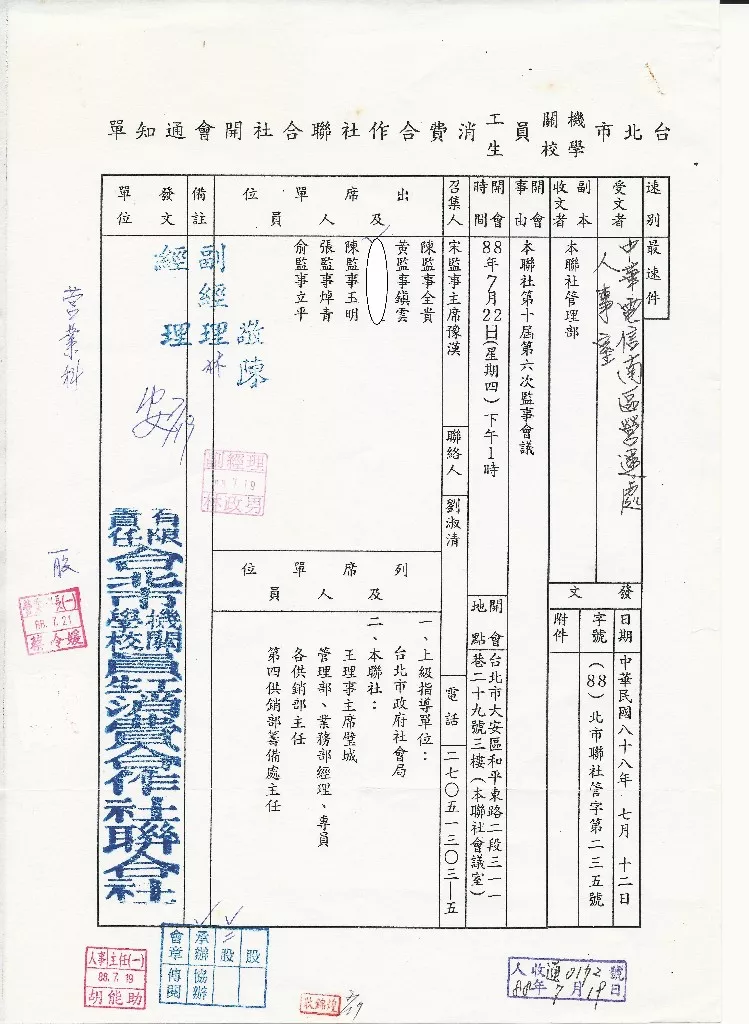 台北市機關學校員工生消費合作社聯合社開會通知單
速別
最速件
受文者
中華電信南區營運處
人事室
副本
收文者
本聯社管理部
發文
日期
中華民國八十八年 七月 十二日
字號
(88)北市聯社管字第二三五號
附件
開會
事由
本聯社第十屆第六次監事會議
開會
時間
88年7月22日(星期四)下午1時
開會
地點
台北市大安區和平東路二段三一一
巷二十九號三樓(本聯社會議室)
召集人
宋監事主席豫漢
聯絡人
劉淑清
電話
二七〇五一三〇三—五
出席單位
及人員
陳監事全貴
黃監事鎮雲
陳監事玉明
張監事焯青
俞監事立平
列席單位
及人員
一、上級指導單位:
台北市政府社會局
二、本聯社:
王理事主席壁城
管理部、業務部經理、專員
各供銷部主任
第四供銷部籌備處主任
備註
敬陳
副經理
林
經理
7/19
副經理
88.7.19
林政男
發文
單位
有限
責任
台北市機關學校員工生消費合作社聯合社
營業科
一股
88.7.21
人事主任(一)
88.7.19
胡能助
股
股
承辦
協辦
會章
傳閱
7/19
人收通0192號
88年7月19日